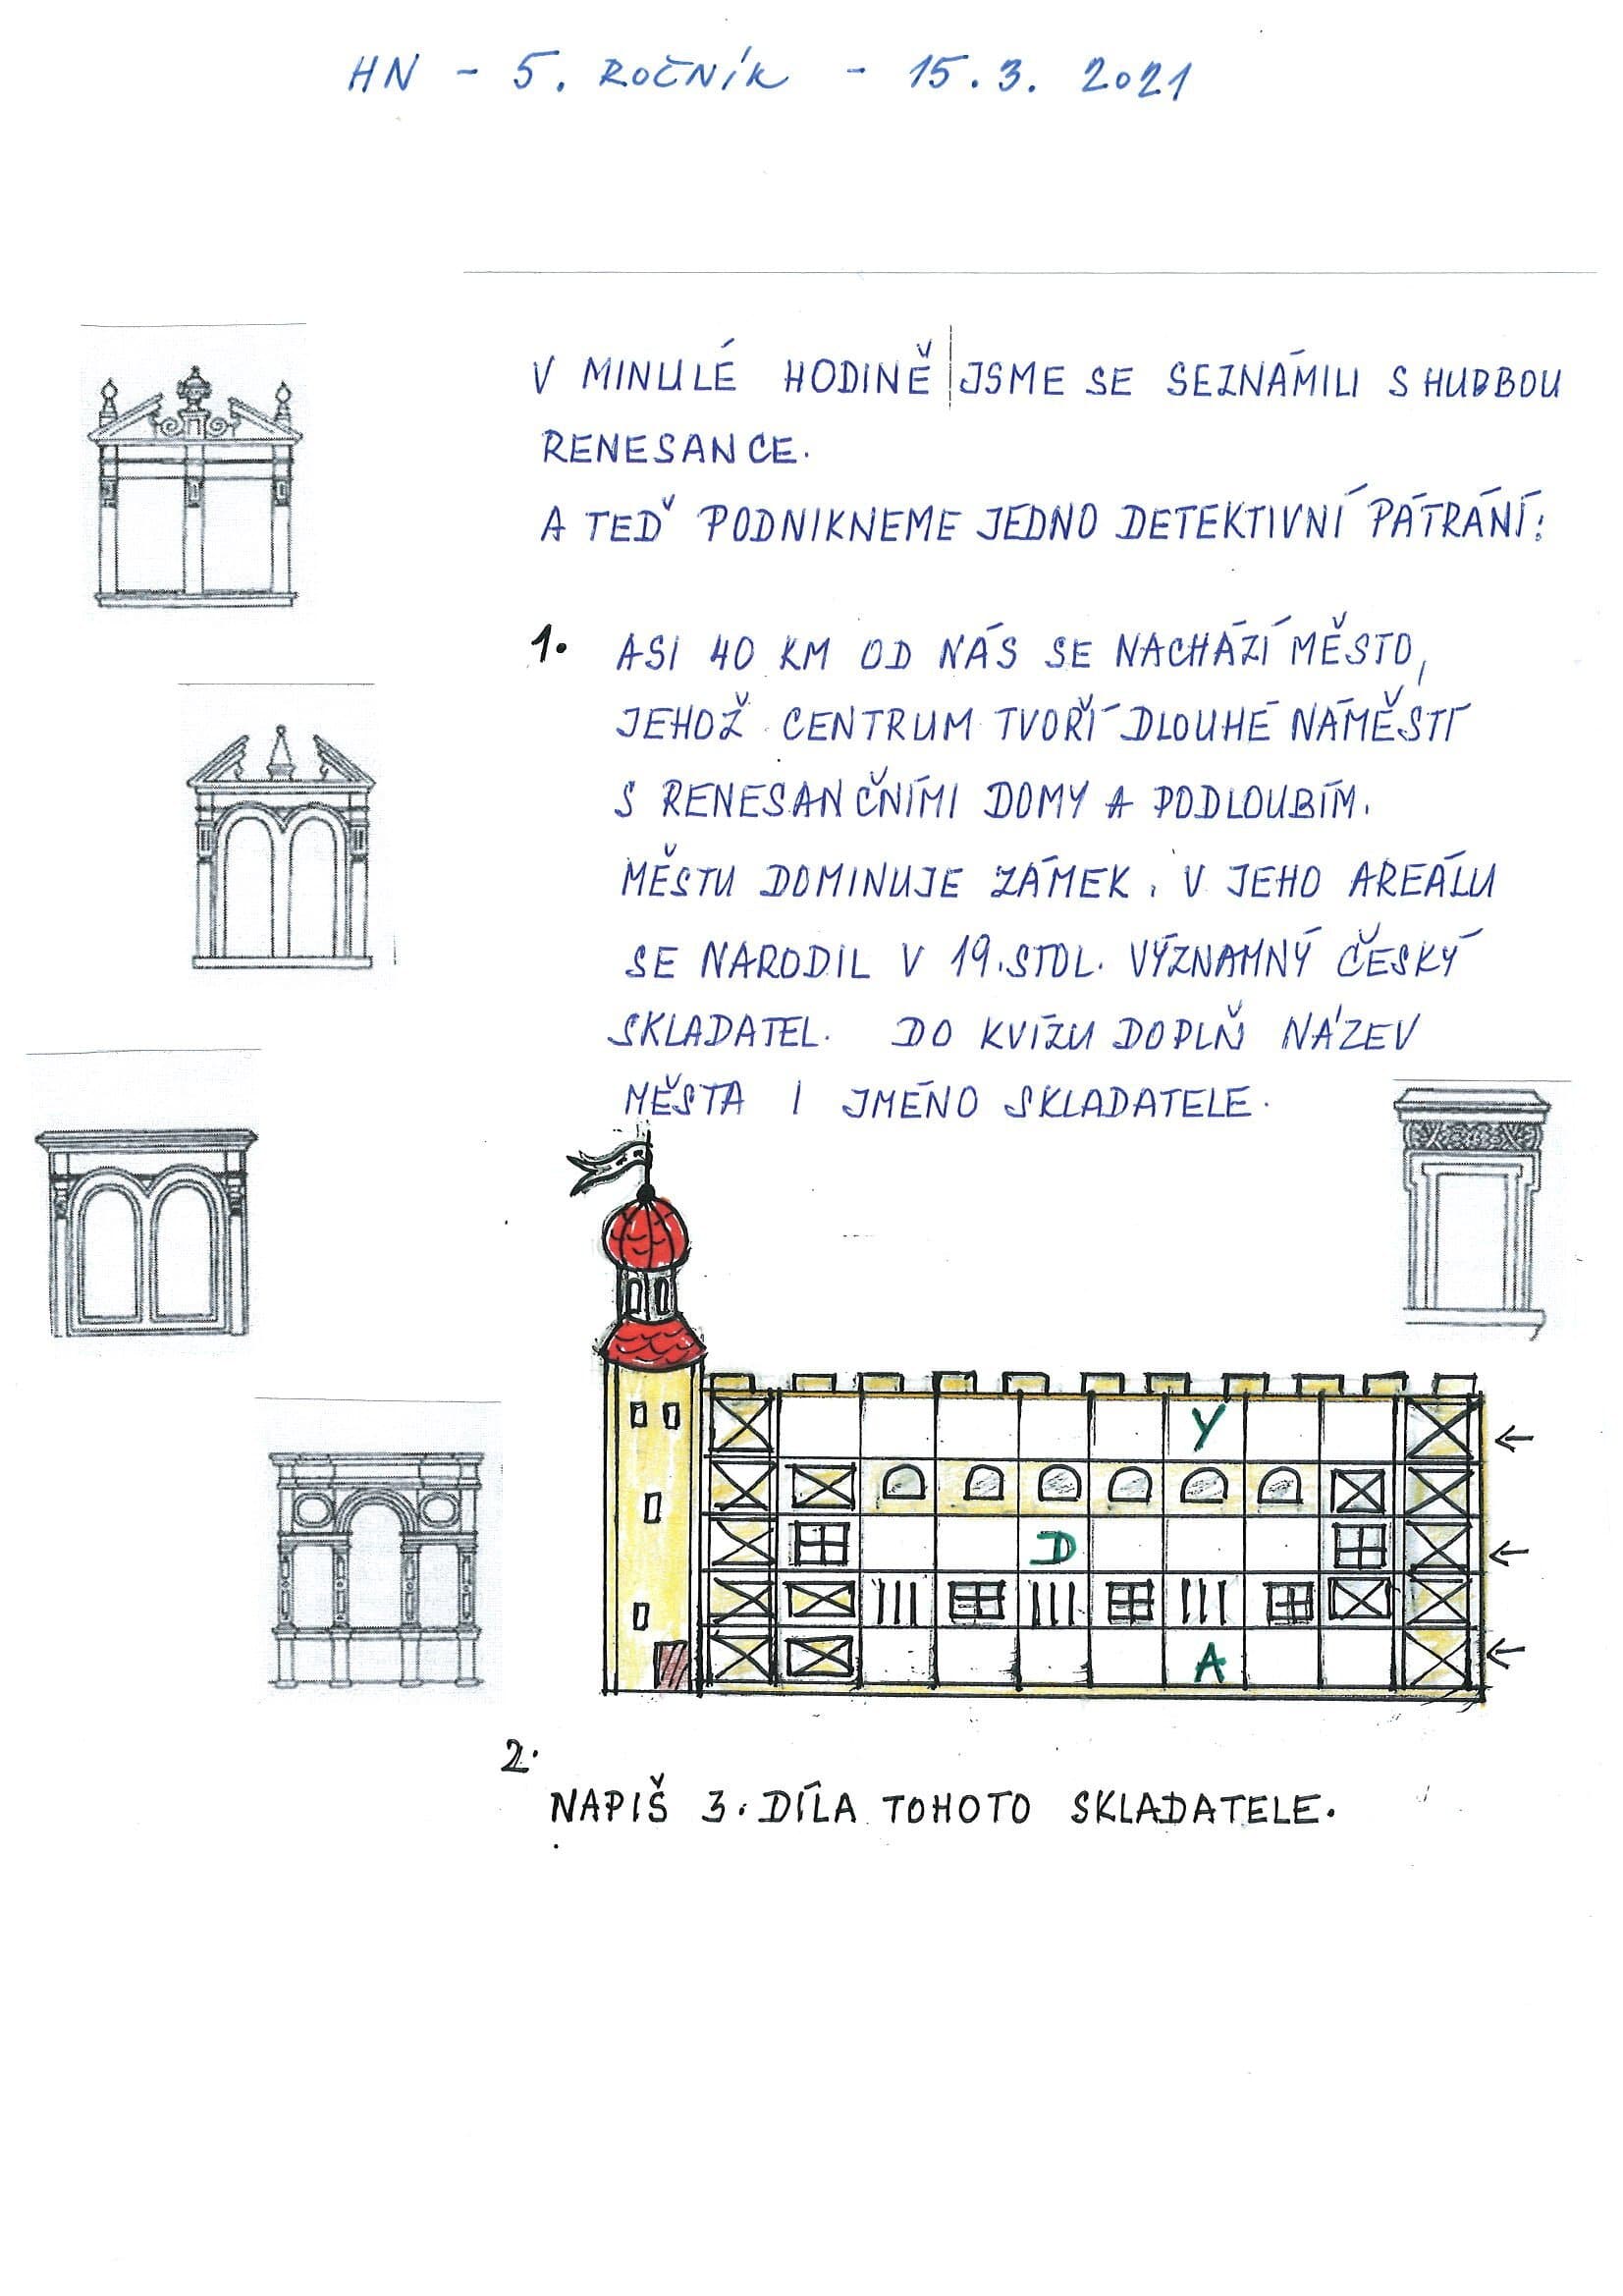 HN - 5. ROČNÍK - 15.3. 2021
V MINULÉ HODINĚ JSME SE SEZNÁMILI S HUDBOU
RENESANCE.
A TEĎ PODNIKNEME JEDNO DETEKTIVNÍ PÁTRÁNÍ:
1. ASI 40 KM OD NÁS SE NACHÁZÍ MĚSTO,
JEHOŽ CENTRUM TVOŘÍ DLOUHÉ NÁMĚSTÍ
S RENESANČNÍMI DOMY A PODLOUBÍM.
MĚSTU DOMINUJE ZÁMEK. V JEHO AREÁLU
SE NARODIL V 19.STOL. VÝZNAMNÝ ČESKÝ
SKLADATEL. DO KVÍZU DOPLŇ NÁZEV
MĚSTA I JMÉNO SKLADATELE.
Y
D
A
2.
NAPIŠ 3. DÍLA TOHOTO SKLADATELE.